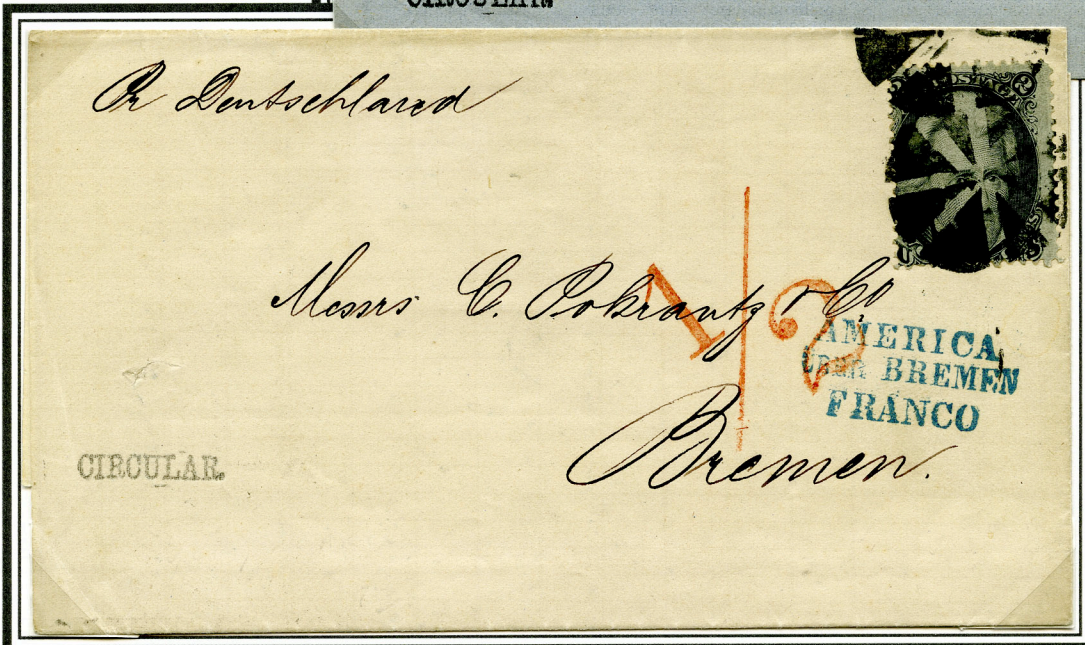 CIRCULAR.
Pr Deutschland
Messrs C. Pokrantz & Co
1/2
AMERICA
ÜBER BREMEN
FRANCO
Bremen.
CIRCULAR.